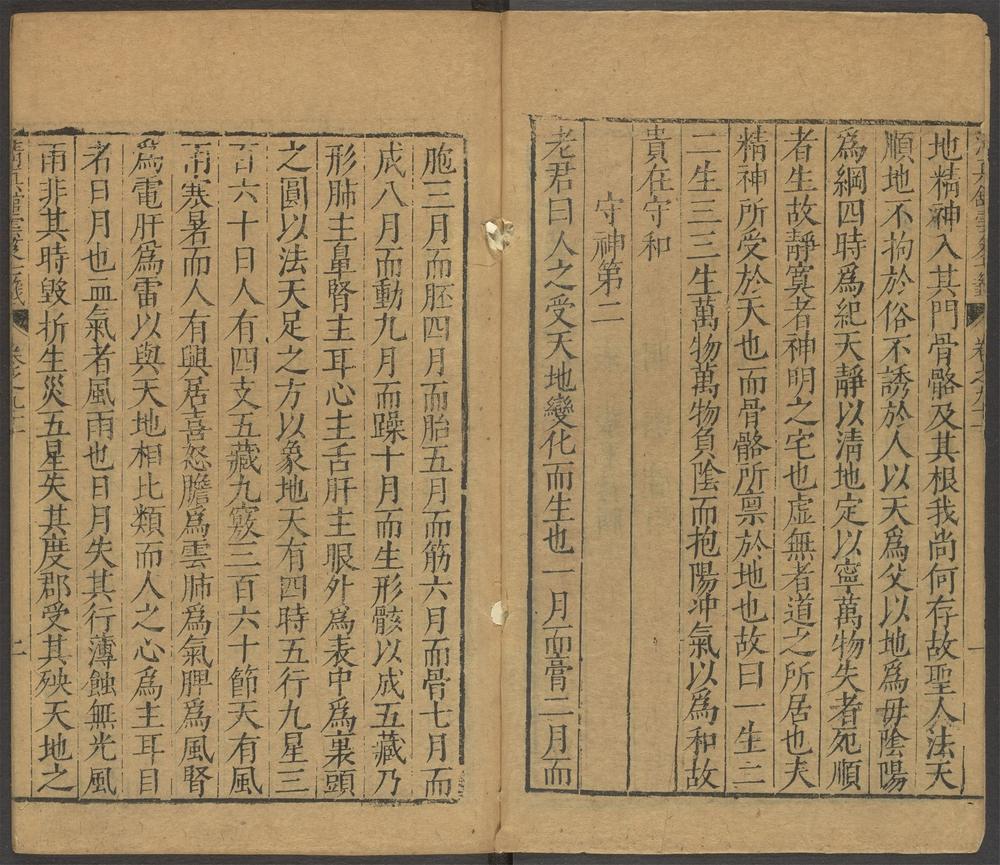 地精神入其門骨骼及其根我尚何存故聖人法天
順地不拘於俗不誘於人以天為父以地為母陰陽
為綱四時為紀天靜以清地定以寧萬物失者死順
者生故靜寞者神明之宅也虛無者道之所居也夫
精神所受於天也而骨骼所禀於地也故曰一生二
二生三三生萬物萬物負陰而抱陽冲氣以為和故
貴在守和
守神第二
老君曰人之受天地變化而生也一月而膏二月而
胞三月而胚四月而胎五月而筋六月而骨七月而
成八月而動九月而躁十月而生形骸以成五藏乃
形肺主鼻腎主耳心主舌肝主眼外為表中為裏頭
之圓以法天足之方以象地天有四時五行九星三
百六十日人有四支五藏九竅三百六十節天有風
雨寒暑而人有與居喜怒膽為雲肺為氣脾為風腎
為電肝為雷以與天地相比類而人之心為主耳目
者日月也血氣者風雨也日月失其行薄蝕無光風
雨非其時毀折生災五星失其度郡受其殃天地之